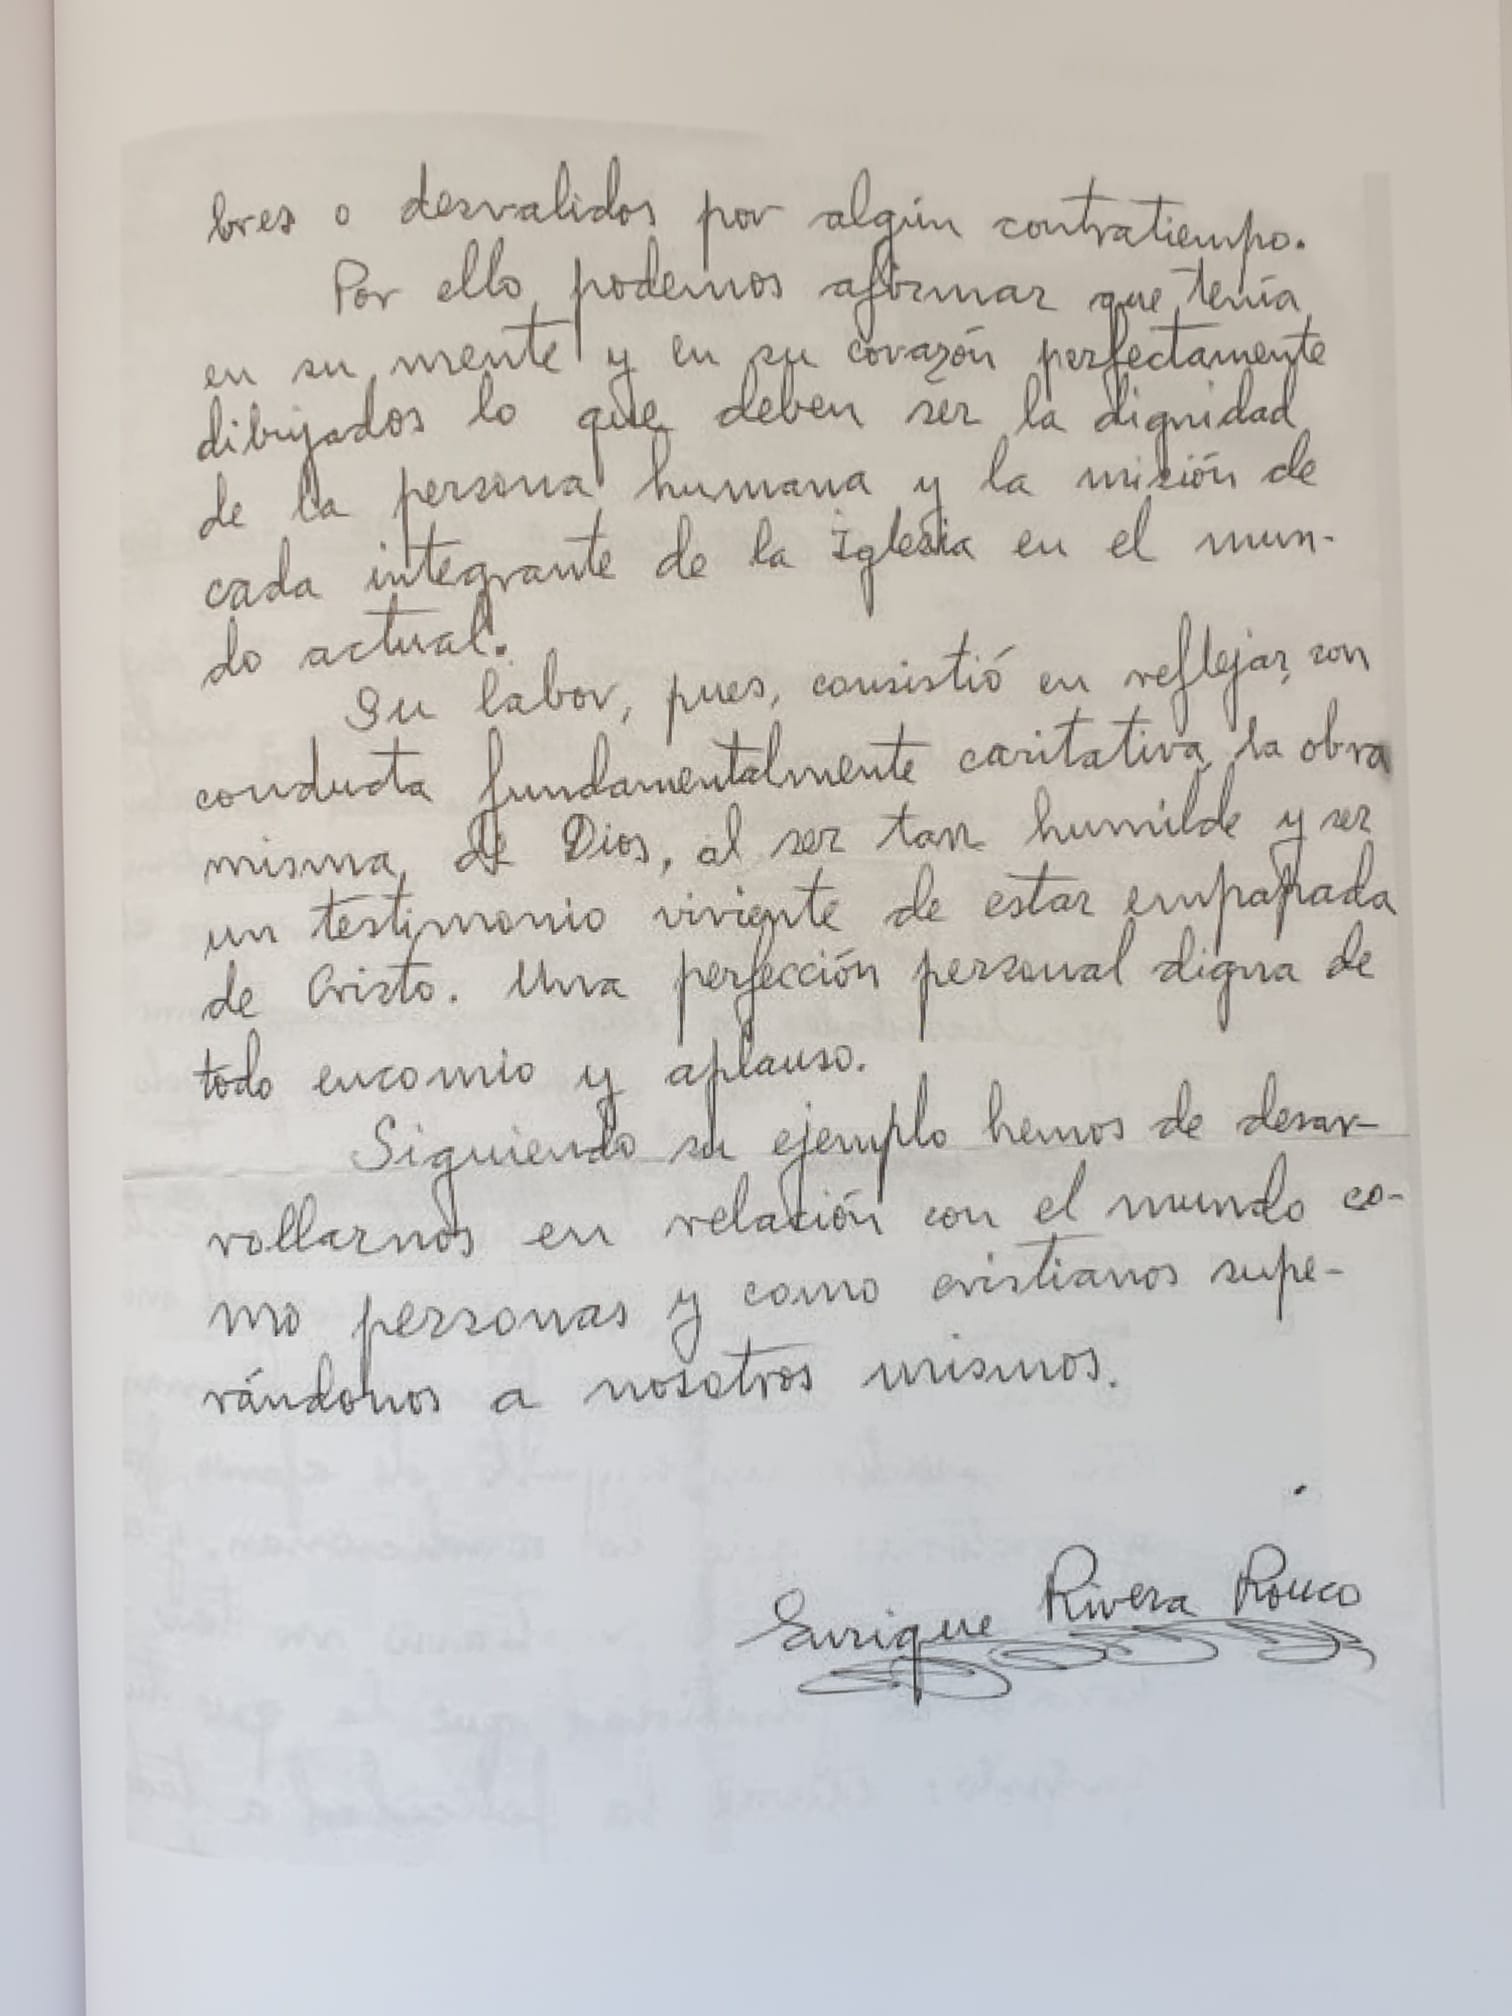 bres o desvalidos por algún contratiempo.
Por ello, podemos afirmar que tenía
en su mente y en su corazón perfectamente
dibujados lo que deben ser la dignidad
de la persona humana y la misión de
cada integrante de la Iglesia en el mun-
do actual.
Su labor, pues, consistió en reflejar, con
conducta fundamentalmente caritativa, la obra
misma de Dios, al ser tan humilde y ser
un testimonio viviente de estar empapada
de Cristo. Una perfección personal digna de
todo encomio y aplauso.
Siguiendo su ejemplo hemos de desar-
rollarnos en relación con el mundo co-
mo personas y como cristianos supe-
rándonos a nosotros mismos.
Enrique Rivera Rouco